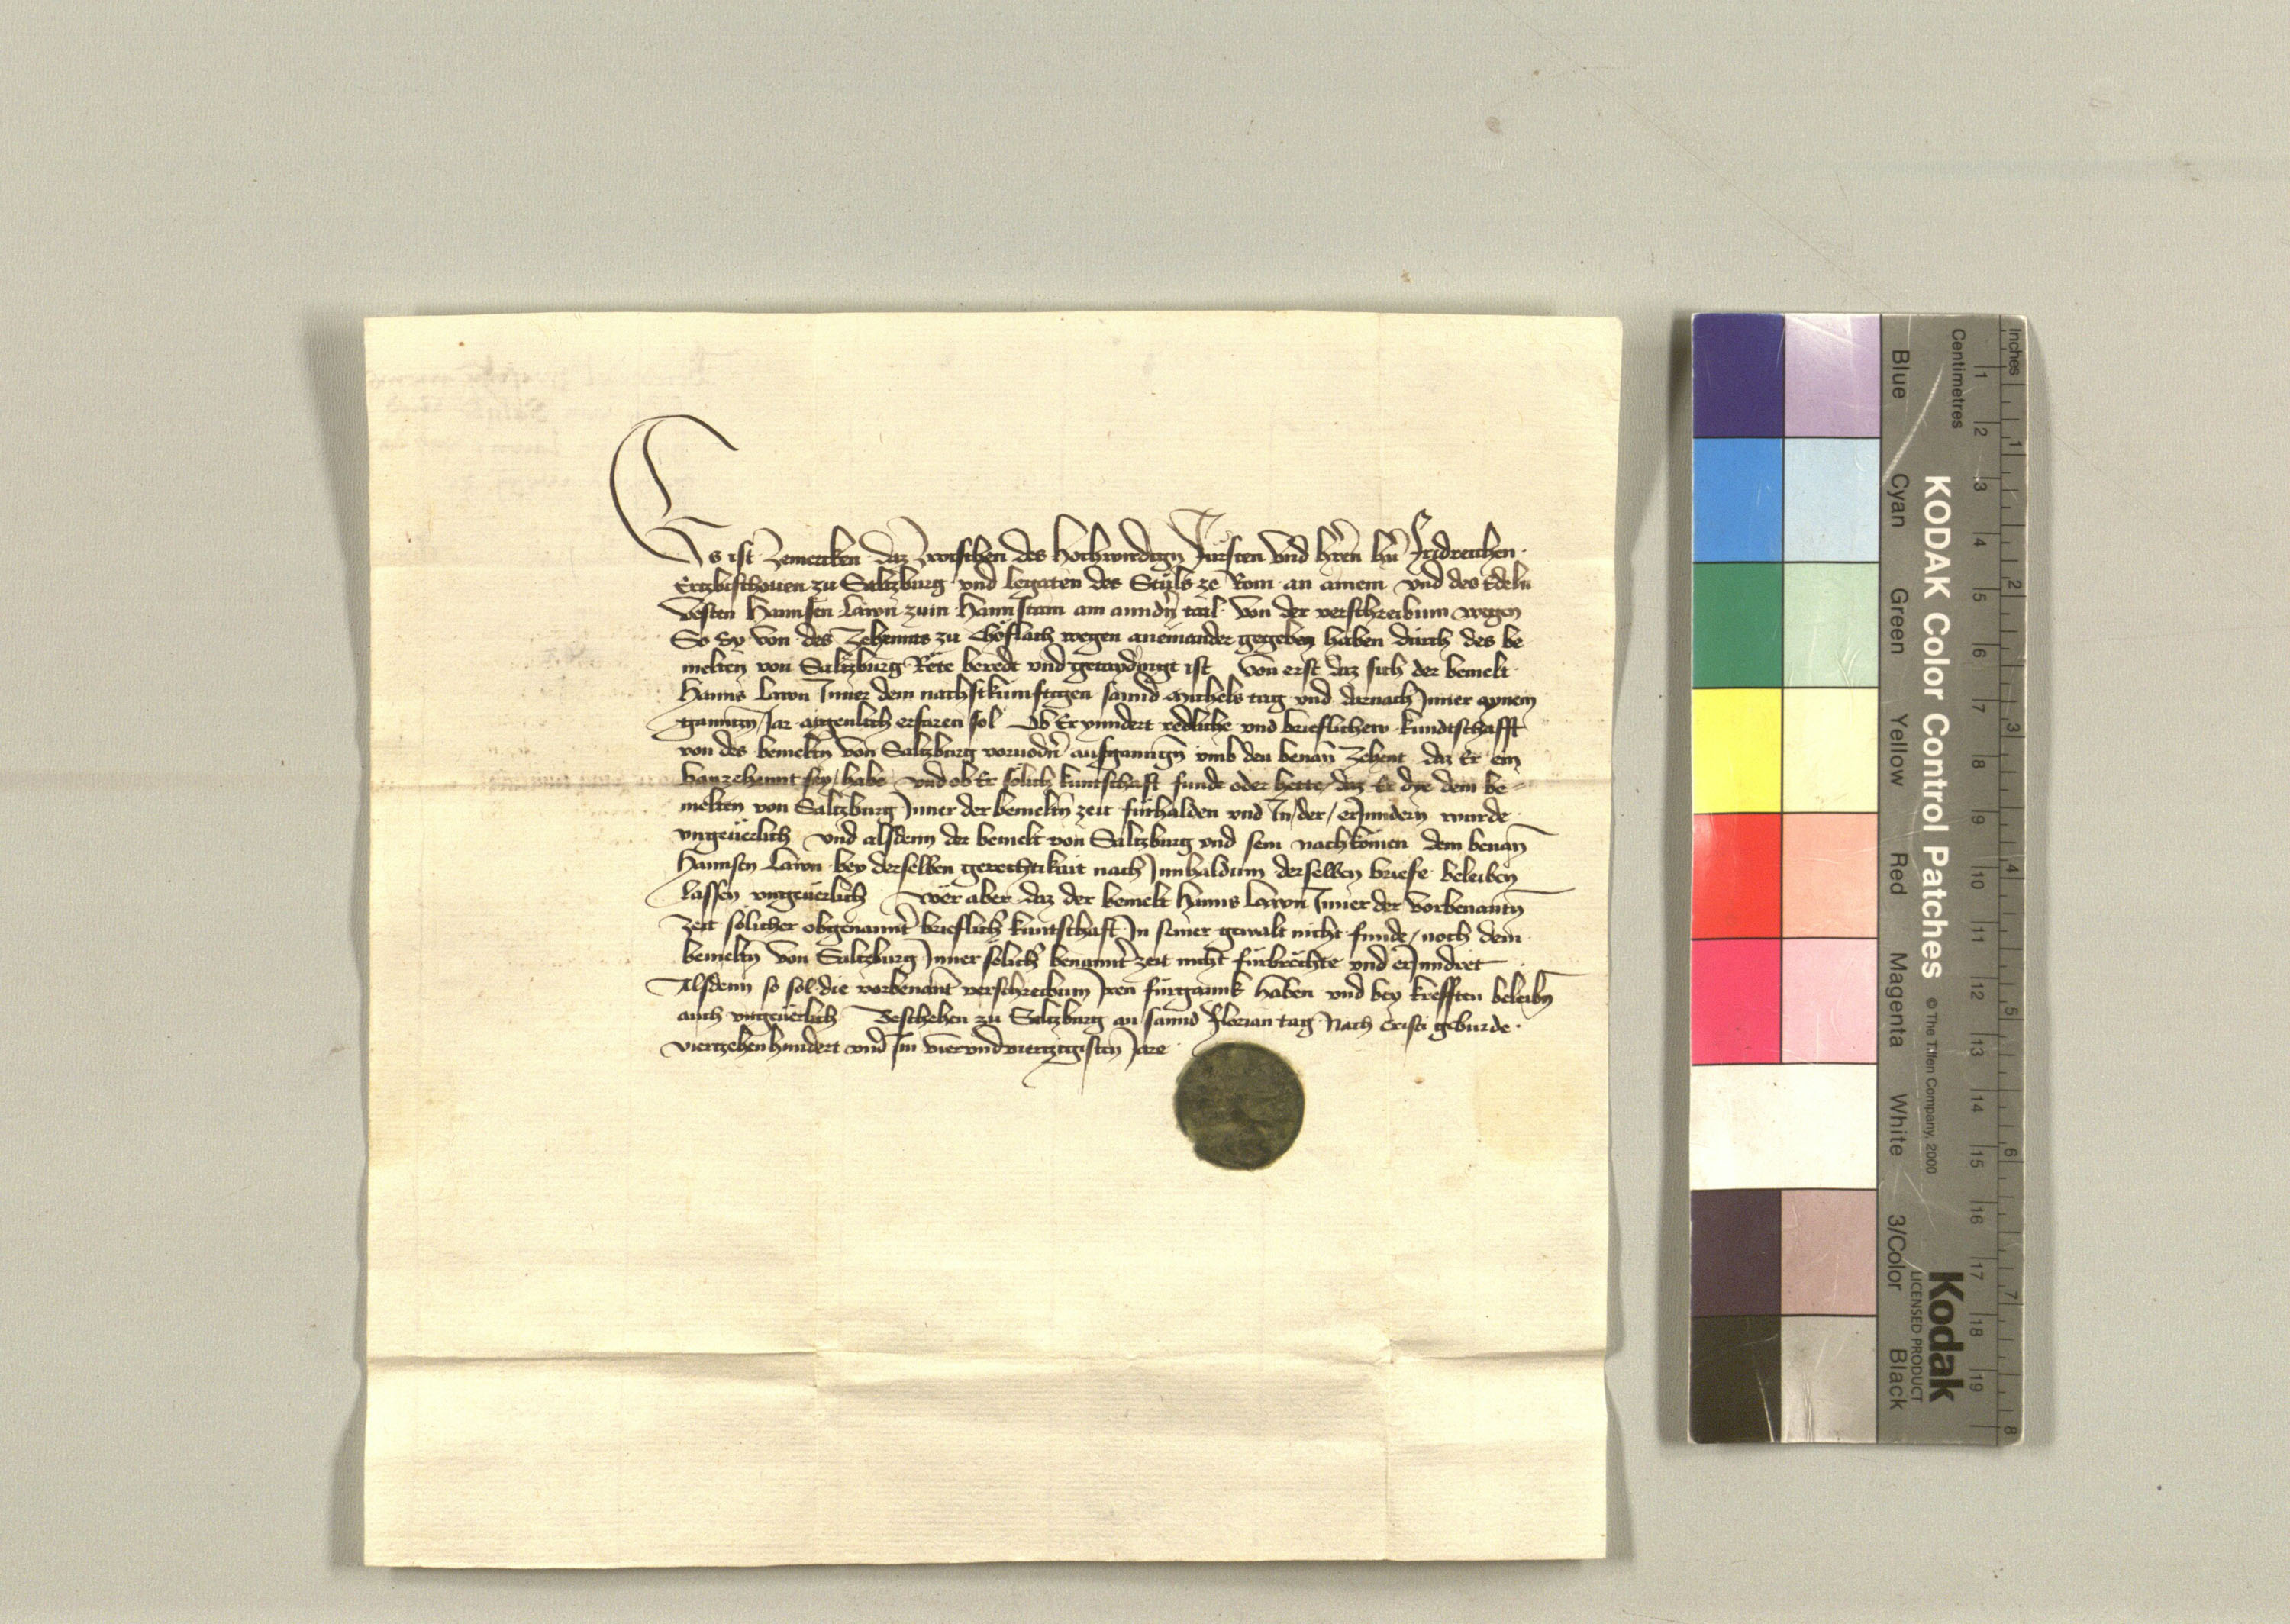 Es ist Zemerken daz Zwischen des hochwirdigen Fürsten vnd hren hn Fridreichen
Ertzbischouen zu Saltzburg vnd legaten des Stůls ze Rom an ainem vnd des Edeln
vesten Hannsen Lawn zum Hannstain am anndn tail von der verschreibum wegen
So Sy von des Zehennts zu wegen aneinander gegeben haben durch des be
melten von Saltzburg Rête beredt vnd getaydingt ist von erst daz sich der bemelt
Hanns Lawn Inner dem nachstkünftigen sannd Michels tag vnd darnach Inner aynem
ganntzn Jar aigenlich erfaren sol Ob Er ynndert redliche vnd brieflichew kundtschafft
von des bemeltn von Saltzburg voruodn ausganngn vmb den benan Zehent daz Er ein
sey habe vnd ob Er solich kuntschaft funde oder hette daz Er dye dem be-
melten von Saltzburg Inner der bemeltn zeit fürhalden vnd In der erInndern wurde
vngeuerlich vnd alsdenn der bemelt von Saltzburg vnd sein nachkomen dem benan
Hannsen Lawn bey derselben gerechtikait nach Innhaldum derselben briefe beleiben
lassen vngeuerlich Wêr aber daz der bemelt Hanns Lawn Inner der vorbenantn
Zeit solicher obgenannt brieflich kuntschaft In seiner gewalt nicht funde noch dem
bemeltn von Saltzburg Inner solich benannt zeit nicht fürbrechte vnd erInndret
Alsdenn so sol die vorbenant verschreibum Iren fürgannk haben vnd bey krefften beleibn
auch vngeuerlich Bescheben zu Saltzburg an sannd Florian tag Nach Cristi geburde
viertzehenhundert vnd Im vierundviertzigisten Jare
KODAK Color Control Patches © The Tiffen Company, 2000
Kodak
LICENSED PRODUCT
Blue Cyan Green Yellow Red Magenta White 3/Color Black
Centimetres 1 2 3 4 5 6 7 8 9 10 11 12 13 14 15 16 17 18 19
Inches 1 2 3 4 5 6 7 8